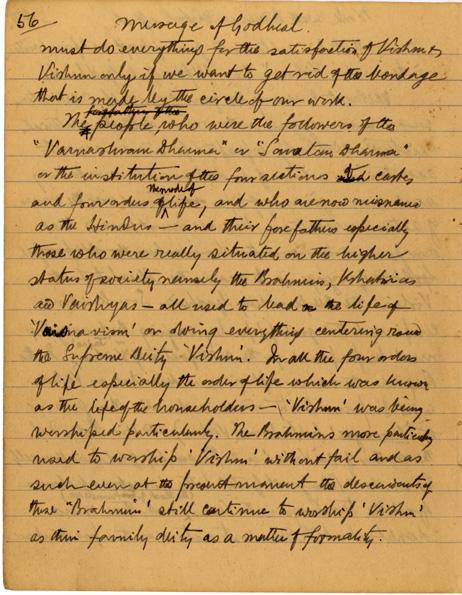 56
Message of Godhead.
must do everything for the satisfaction of Vishnu &
Vishnu only if we want to get rid of the bondage
that is made by the circle of our work.
The people who were the followers of the
"Varnashram Dharma" or "Sanatan Dharma"
or the institution of the four sections of castes
and four orders of the mode of life, and who are now misnamed
as the Hindus — and their forefathers especially
those who were really situated on the higher
status of society namely the Brahmins, Kshatrias
and Vaishyas — all used to lead the life of
'Vaisnavism' or doing everything centering round
the Supreme Deity 'Vishnu'. In all the four orders
of life especially the order of life which was known
as the life of the householders — 'Vishnu' was being
worshiped particularly. The Brahmins more particularly
used to worship 'Vishnu' without fail and as
such even at the present moment the descendants of
these 'Brahmins' still continue to worship 'Vishnu'
as their family deity as a matter of formality.